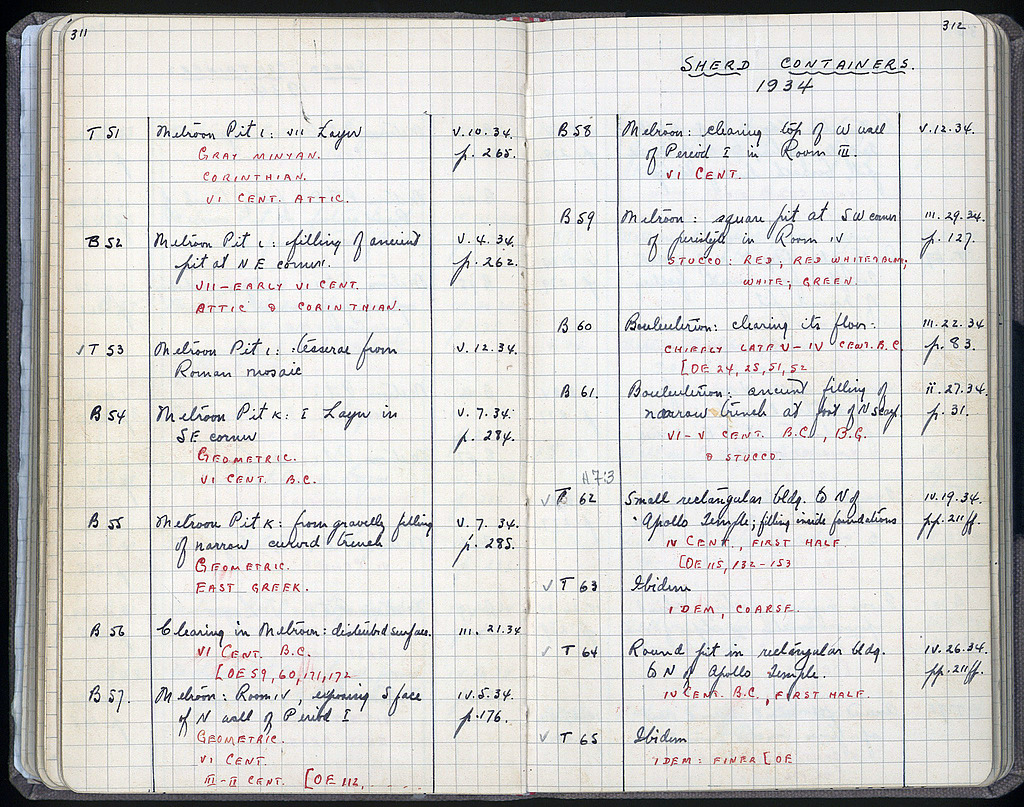 311
T 51 Metroon Pit I: VII Layer V.10.34.
GRAY MINYAN. p. 265.
CORINTHIAN.
VI CENT. ATTIC.
B 52 Metroon Pit L: filling of ancient V.4.34.
pit at NE corner. p. 262.
VII-EARLY VI CENT.
ATTIC & CORINTHIAN.
√T 53 Metroon Pit L: tesserae from V.12.34.
Roman mosaic
B 54 Metroon Pit K: I Layer in V.7.34.
SE corner p. 284.
GEOMETRIC.
VI CENT. B.C.
B 55 Metroon Pit K: from gravelly filling V.7.34.
of narrow curved trench p. 285.
GEOMETRIC.
EAST GREEK.
B 56 Clearing in Metroon: disturbed surface. III.21.34
VI CENT. B.C.
[OE 59, 60, 171, 172
B 57. Metroon: Room IV, exposing S face IV.5.34.
of N wall of Period I p. 176.
GEOMETRIC.
VI CENT.
III-II CENT. [OE 112,
312
SHERD CONTAINERS.
1934
B 58 Metroon: clearing top of W wall V.12.34.
of Period I in Room III.
VI CENT.
B 59 Metroon: square pit at SW corner III.29.34.
of peristyle in Room IV p. 127.
STUCCO: RED; RED WHITE & BLUE;
WHITE; GREEN.
B 60 Bouleuterion: clearing its floor: III.22.34
CHIEFLY LATE V-IV CENT. B.C. p. 83.
[OE 24, 25, 51, 52
B 61. Bouleuterion: ancient filling of II.27.34.
narrow trench at foot of N scarp p. 31.
VI-V CENT. B.C., B.G.
& STUCCO.
H 7:3
√ T 62 Small rectangular bldg. to N of IV.19.34.
Apollo Temple; filling inside foundations pp. 211 ff.
IV CENT., FIRST HALF.
[OE 115, 132-153
√ T 63 Ibidem
IDEM, COARSE.
√ T 64 Round pit in rectangular bldg. IV.26.34.
to N of Apollo Temple. pp. 211 ff.
IV CENT. B.C., FIRST HALF.
√ T 65 Ibidem
IDEM: FINER [OE